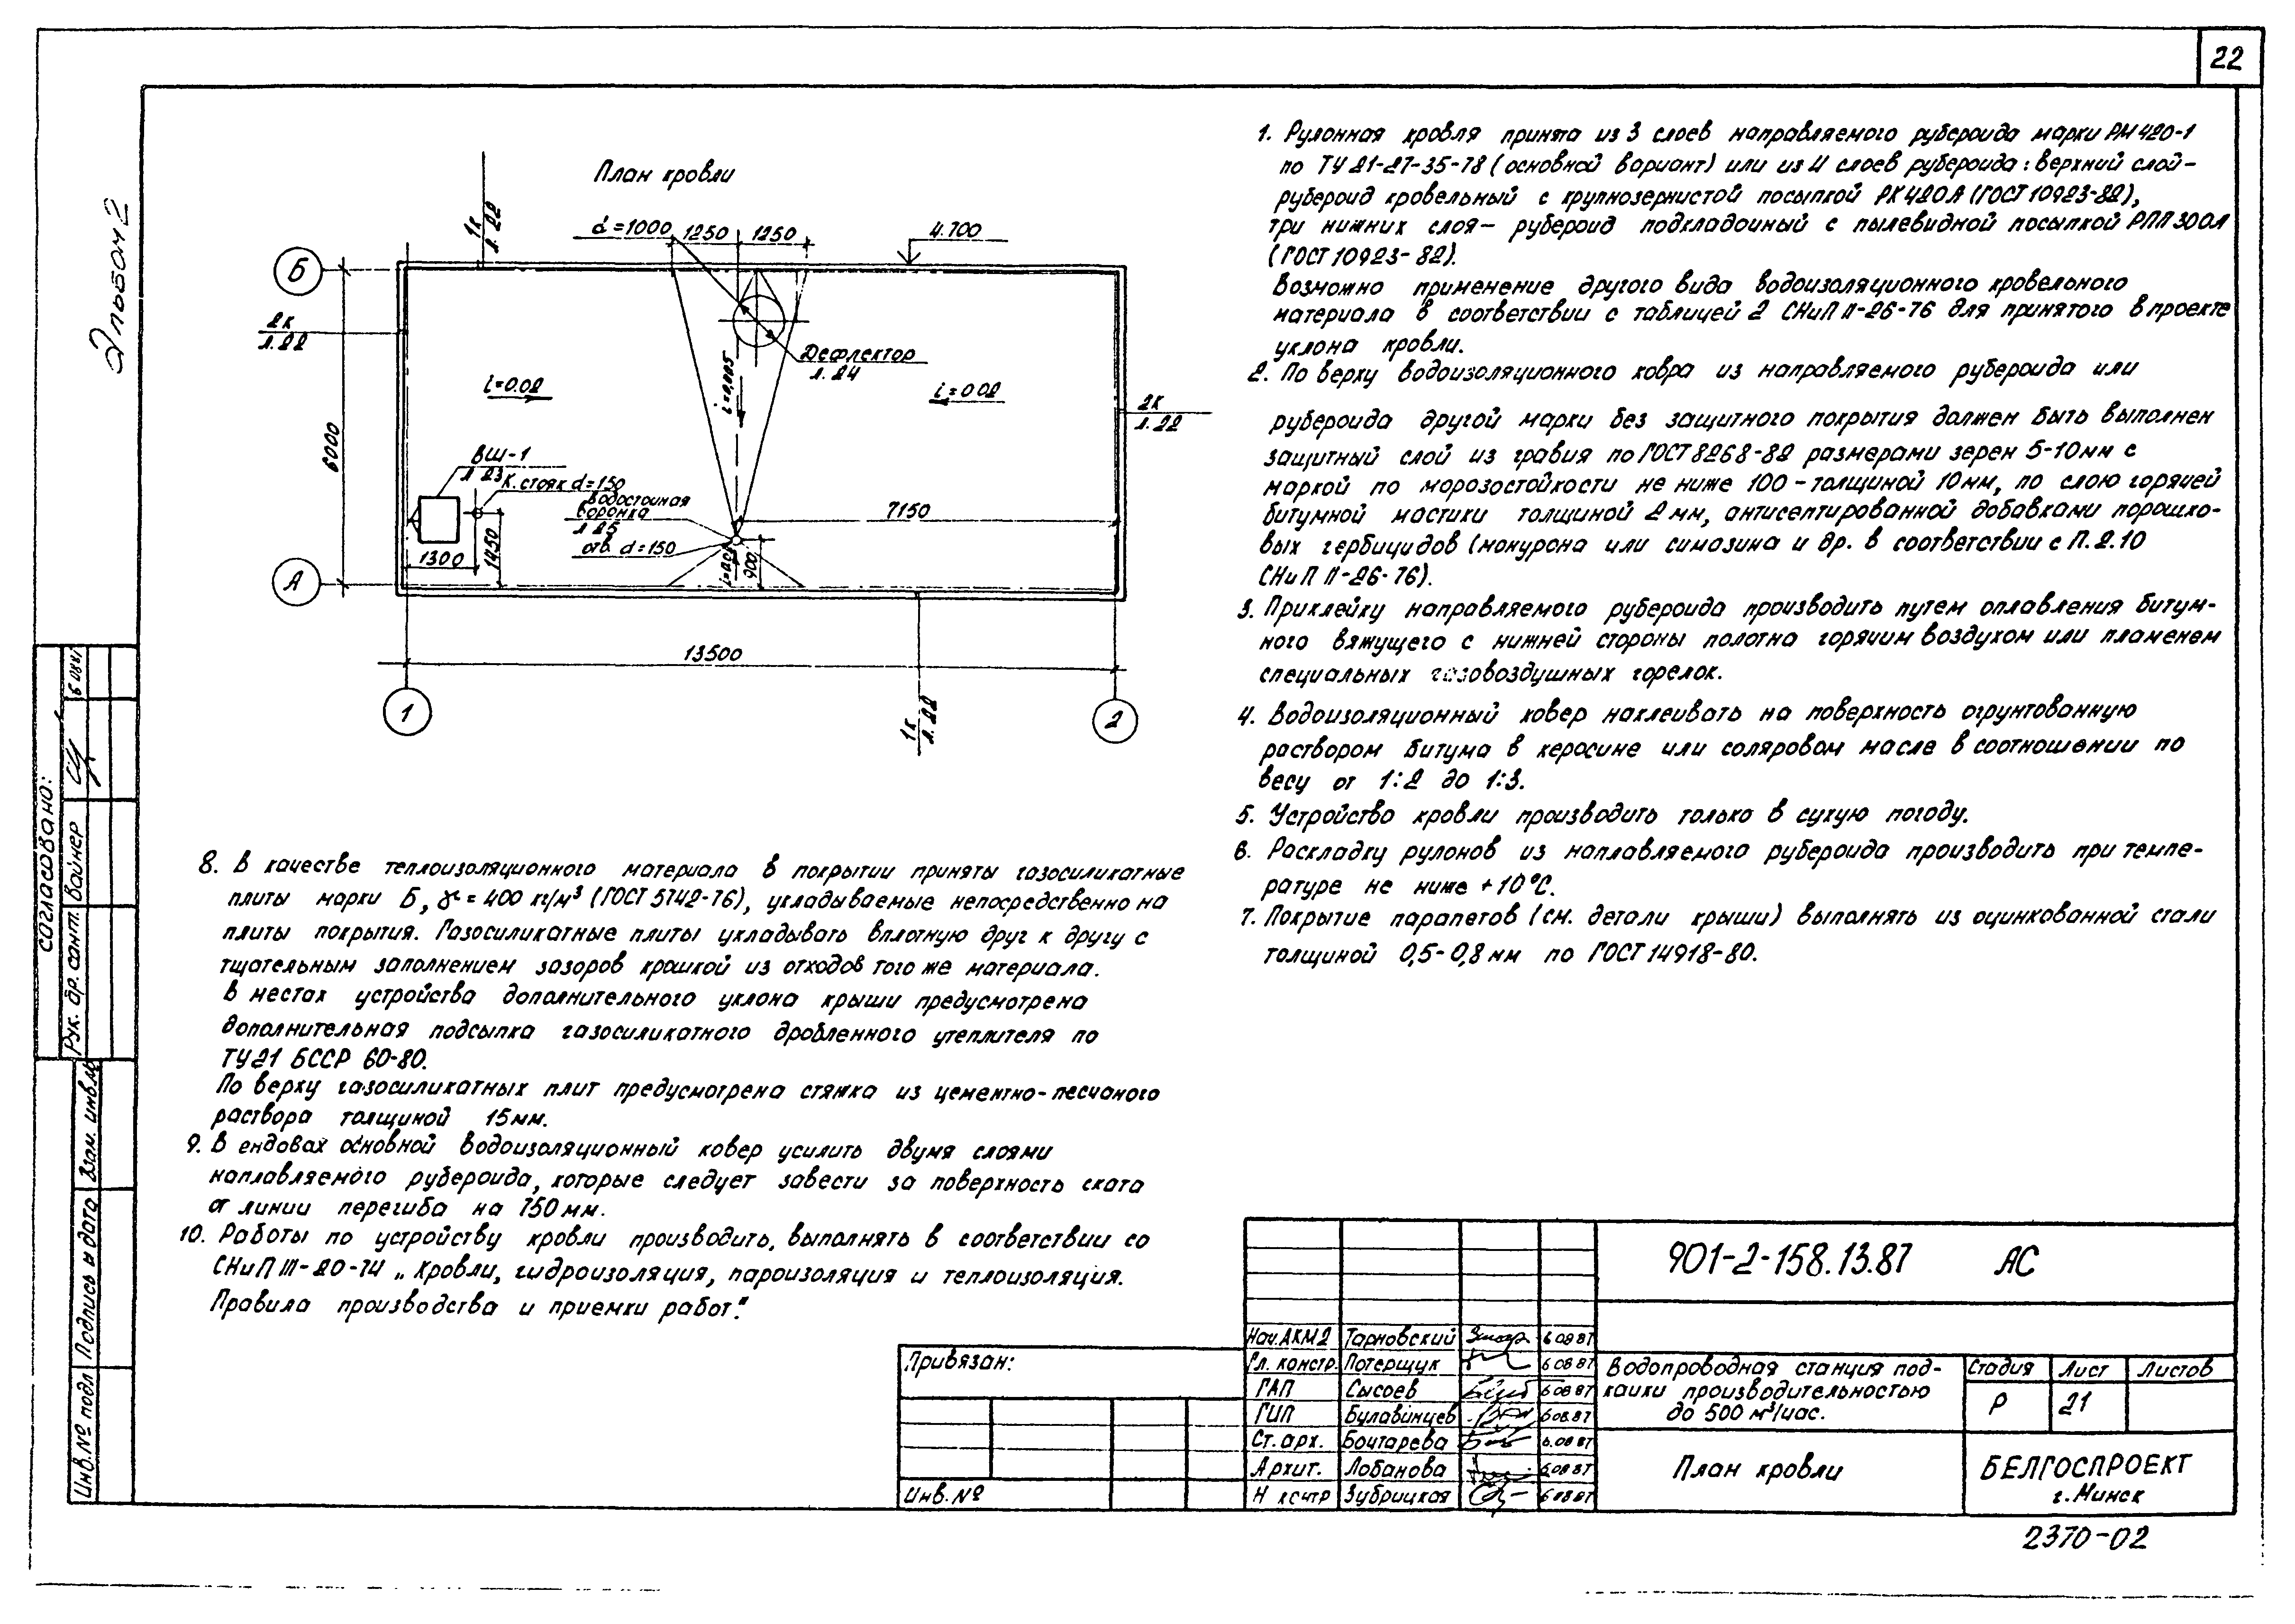 22
Альбом 2
План кровли
1К
Л. 22
d=1000
1250
1250
4.700
Б
2К
Л. 22
Дефлектор
Л. 24
i=0.02
i=0.005
i=0.02
2К
Л. 22
6000
ВШ-1
Л 23
К. стояк d=150
Водосточная
воронка
Л 25
отв. d=150
7150
1300
1450
900
А
13500
1
2
1К
Л. 22
1. Рулонная кровля принята из 3 слоев направляемого рубероида марки РМ 420-1
по ТУ 21-27-35-78 (основной вариант) или из 4 слоев рубероида: верхний слой-
рубероид кровельный с крупнозернистой посыпкой РК 420А (ГОСТ 10923-82),
три нижних слоя- рубероид подкладочный с пылевидной посыпкой РПП 300А
(ГОСТ 10923-82).
Возможно применение другого вида водоизоляционного кровельного
материала в соответствии с таблицей 2 СНиП II-26-76 для принятого в проекте
уклона кровли.
2. По верху водоизоляционного ковра из направляемого рубероида или
рубероида другой марки без защитного покрытия должен быть выполнен
защитный слой из гравия по ГОСТ 8268-82 размерами зерен 5-10мм с
маркой по морозостойкости не ниже 100 - толщиной 10мм, по слою горячей
битумной мастики толщиной 2мм, антисептированной добавками порошко-
вых гербицидов (монурона или симазина и др. в соответствии с П.2.10
СНиП II-26-76).
3. Приклейку направляемого рубероида производить путем оплавления битум-
ного вяжущего с нижней стороны полотна горячим воздухом или пламенем
специальных газовоздушных горелок.
4. Водоизоляционный ковер наклеивать на поверхность огрунтованную
раствором битума в керосине или соляровом масле в соотношении по
весу от 1:2 до 1:3.
5. Устройство кровли производить только в сухую погоду.
6. Раскладку рулонов из наплавляемого рубероида производить при темпе-
ратуре не ниже +10°С.
7. Покрытие парапетов (см. детали крыши) выполнять из оцинкованной стали
толщиной 0,5-0,8мм по ГОСТ 14918-80.
8. В качестве теплоизоляционного материала в покрытии приняты газосиликатные
плиты марки Б, γ=400 кг/м³ (ГОСТ 5742-76), укладываемые непосредственно на
плиты покрытия. Газосиликатные плиты укладывать вплотную друг к другу с
тщательным заполнением зазоров крошкой из отходов того же материала.
В местах устройства дополнительного уклона крыши предусмотрена
дополнительная подсыпка газосиликатного дробленного утеплителя по
ТУ21 БССР 60-80.
По верху газосиликатных плит предусмотрена стяжка из цементно-песчаного
раствора толщиной 15мм.
9. В ендовах основной водоизоляционный ковер усилить двумя слоями
наплавляемого рубероида, которые следует завести за поверхность ската
от линии перегиба на 750мм.
10. Работы по устройству кровли производить, выполнять в соответствии со
СНиП III-20-74 „Кровли, гидроизоляция, пароизоляция и теплоизоляция.
Правила производства и приемки работ."
согласовано:
Рук. бр. сант. Вайнер
Инв.№ подл Подпись и дата Взам. инв.№
Привязан:
Инв.№
901-2-158.13.87 АС
Нач.АКМ2 Тарновский 6 08 87
Гл. констр. Потерщук 6 08 87
ГАП Сысоев 6 08 87
ГИП Булавинцев 6 08.87
Ст. арх. Бочтарева 6.08 87
Архит. Лобанова 6 08 87
Н контр Зубрицкая 6 08 87
Водопроводная станция под-
качки производительностью
до 500 м³/час.
Стадия Лист Листов
Р 21
План кровли
БЕЛГОСПРОЕКТ
г. Минск
2370-02